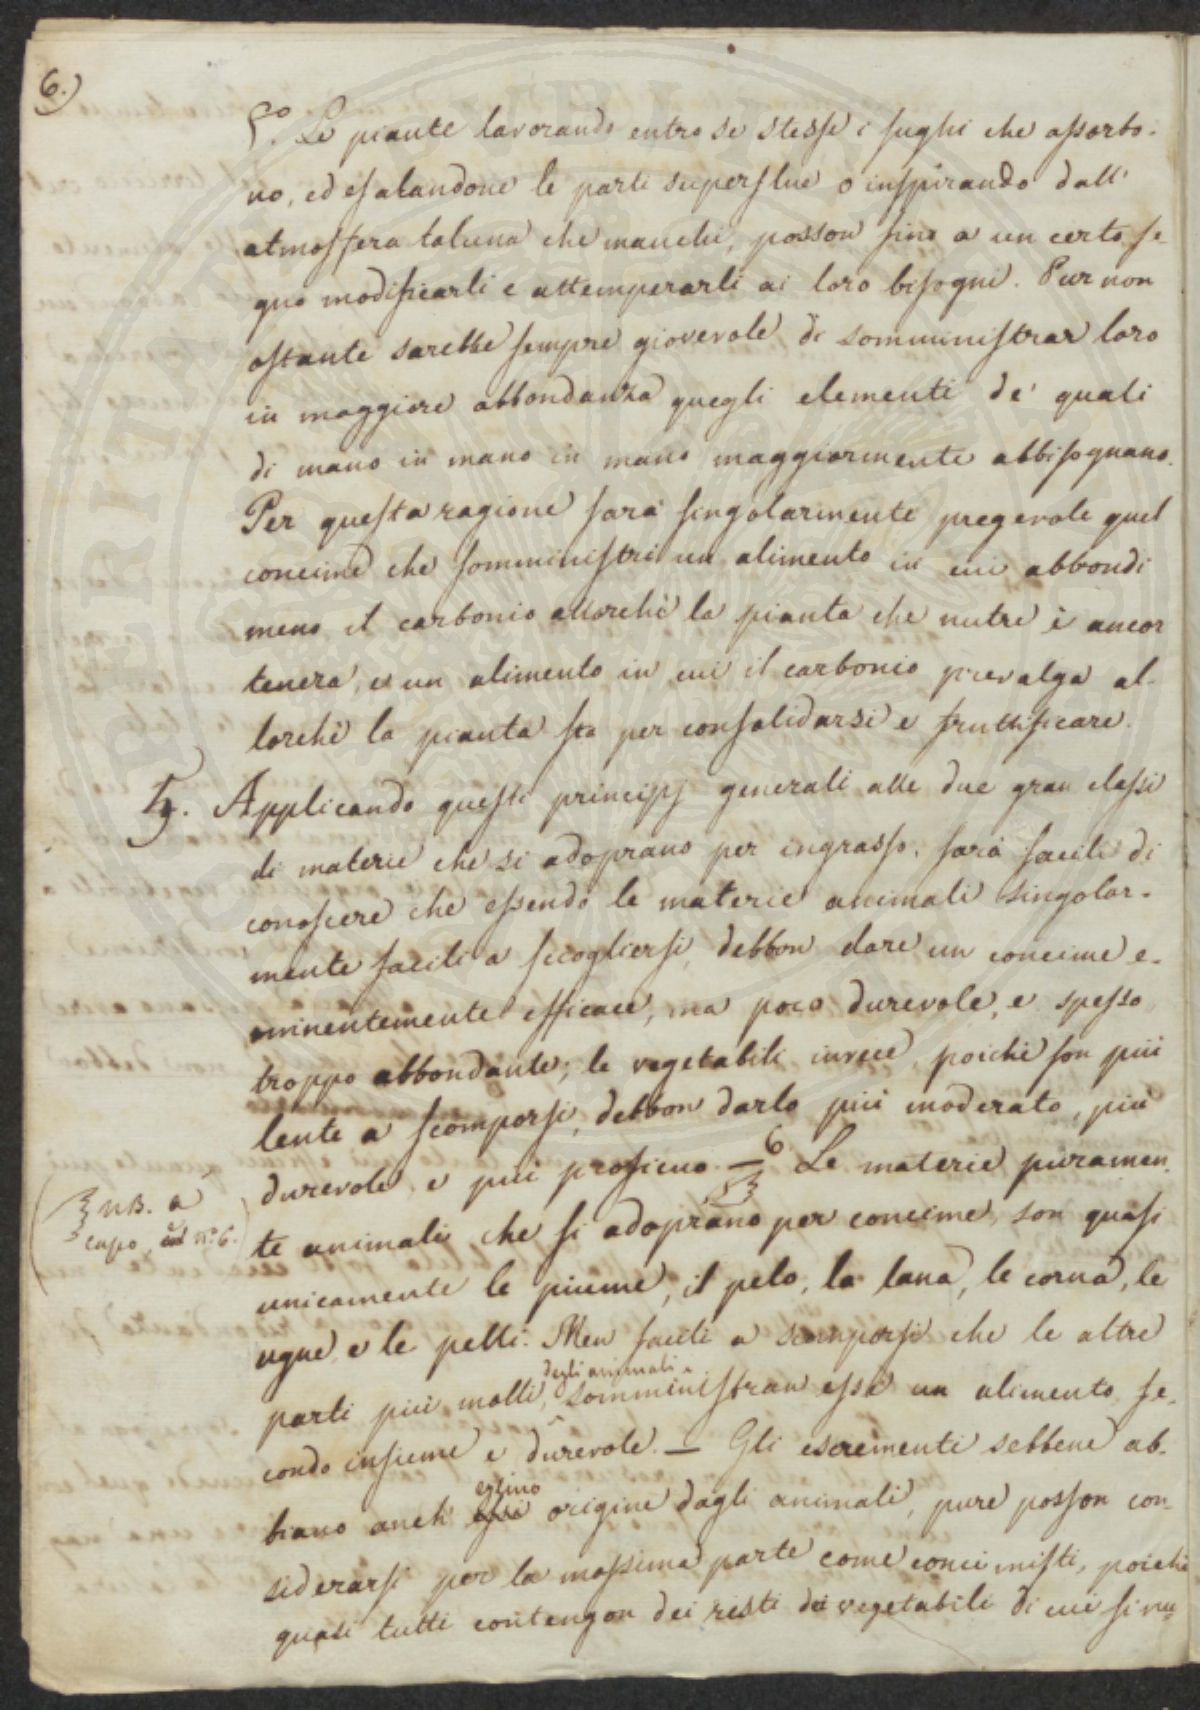 6.)
5.° Le piante lavorando entro se stesse i sughi che assorbo-
no, ed esalandone le parti superflue o inspirando dall'
atmosfera taluna che manchi, posson sino a un certo se-
gno modificarli e attemperarli ai loro bisogni. Pur non
ostante sarebbe sempre giovevole di somministrar loro
in maggiore abbondanza quegli elementi de' quali
di mano in mano in mano maggiormente abbisognano.
Per questa ragione sarà singolarmente pregevole quel
concime che somministri un alimento in cui abbondi
meno il carbonio allorchè la pianta che nutre è ancor
tenera, e un alimento in cui il carbonio prevalga al-
lorchè la pianta sta per consolidarsi e fruttificare.
5. Applicando questi principj generali alle due gran classi
di materie che si adoprano per ingrasso, sarà facile di
conoscere che essendo le materie animali singolar-
mente facili a sciogliersi, debbon dare un concime e-
minentemente efficace, ma poco durevole, e spesso
troppo abbondante; le vegetabili invece, poichè son più
lente a scomporsi, debbon darlo più moderato, più
durevole, e più proficuo. — 6 Le materie puramen-
NB. a
capo, n.° 6.
te animali che si adoprano per concime, son quasi
unicamente le piume, il pelo, la lana, le corna, le
ugne, e le pelli. Men facili a scomporsi che le altre
parti più molli degli animali, somministran esse un alimento fe-
condo insieme e durevole. — Gli escrementi sebbene ab-
biano anch' essi eglino origine dagli animali, pure posson con-
siderarsi per la massima parte come conci misti, poichè
quasi tutti contengon dei resti di vegetabili di cui si nu-